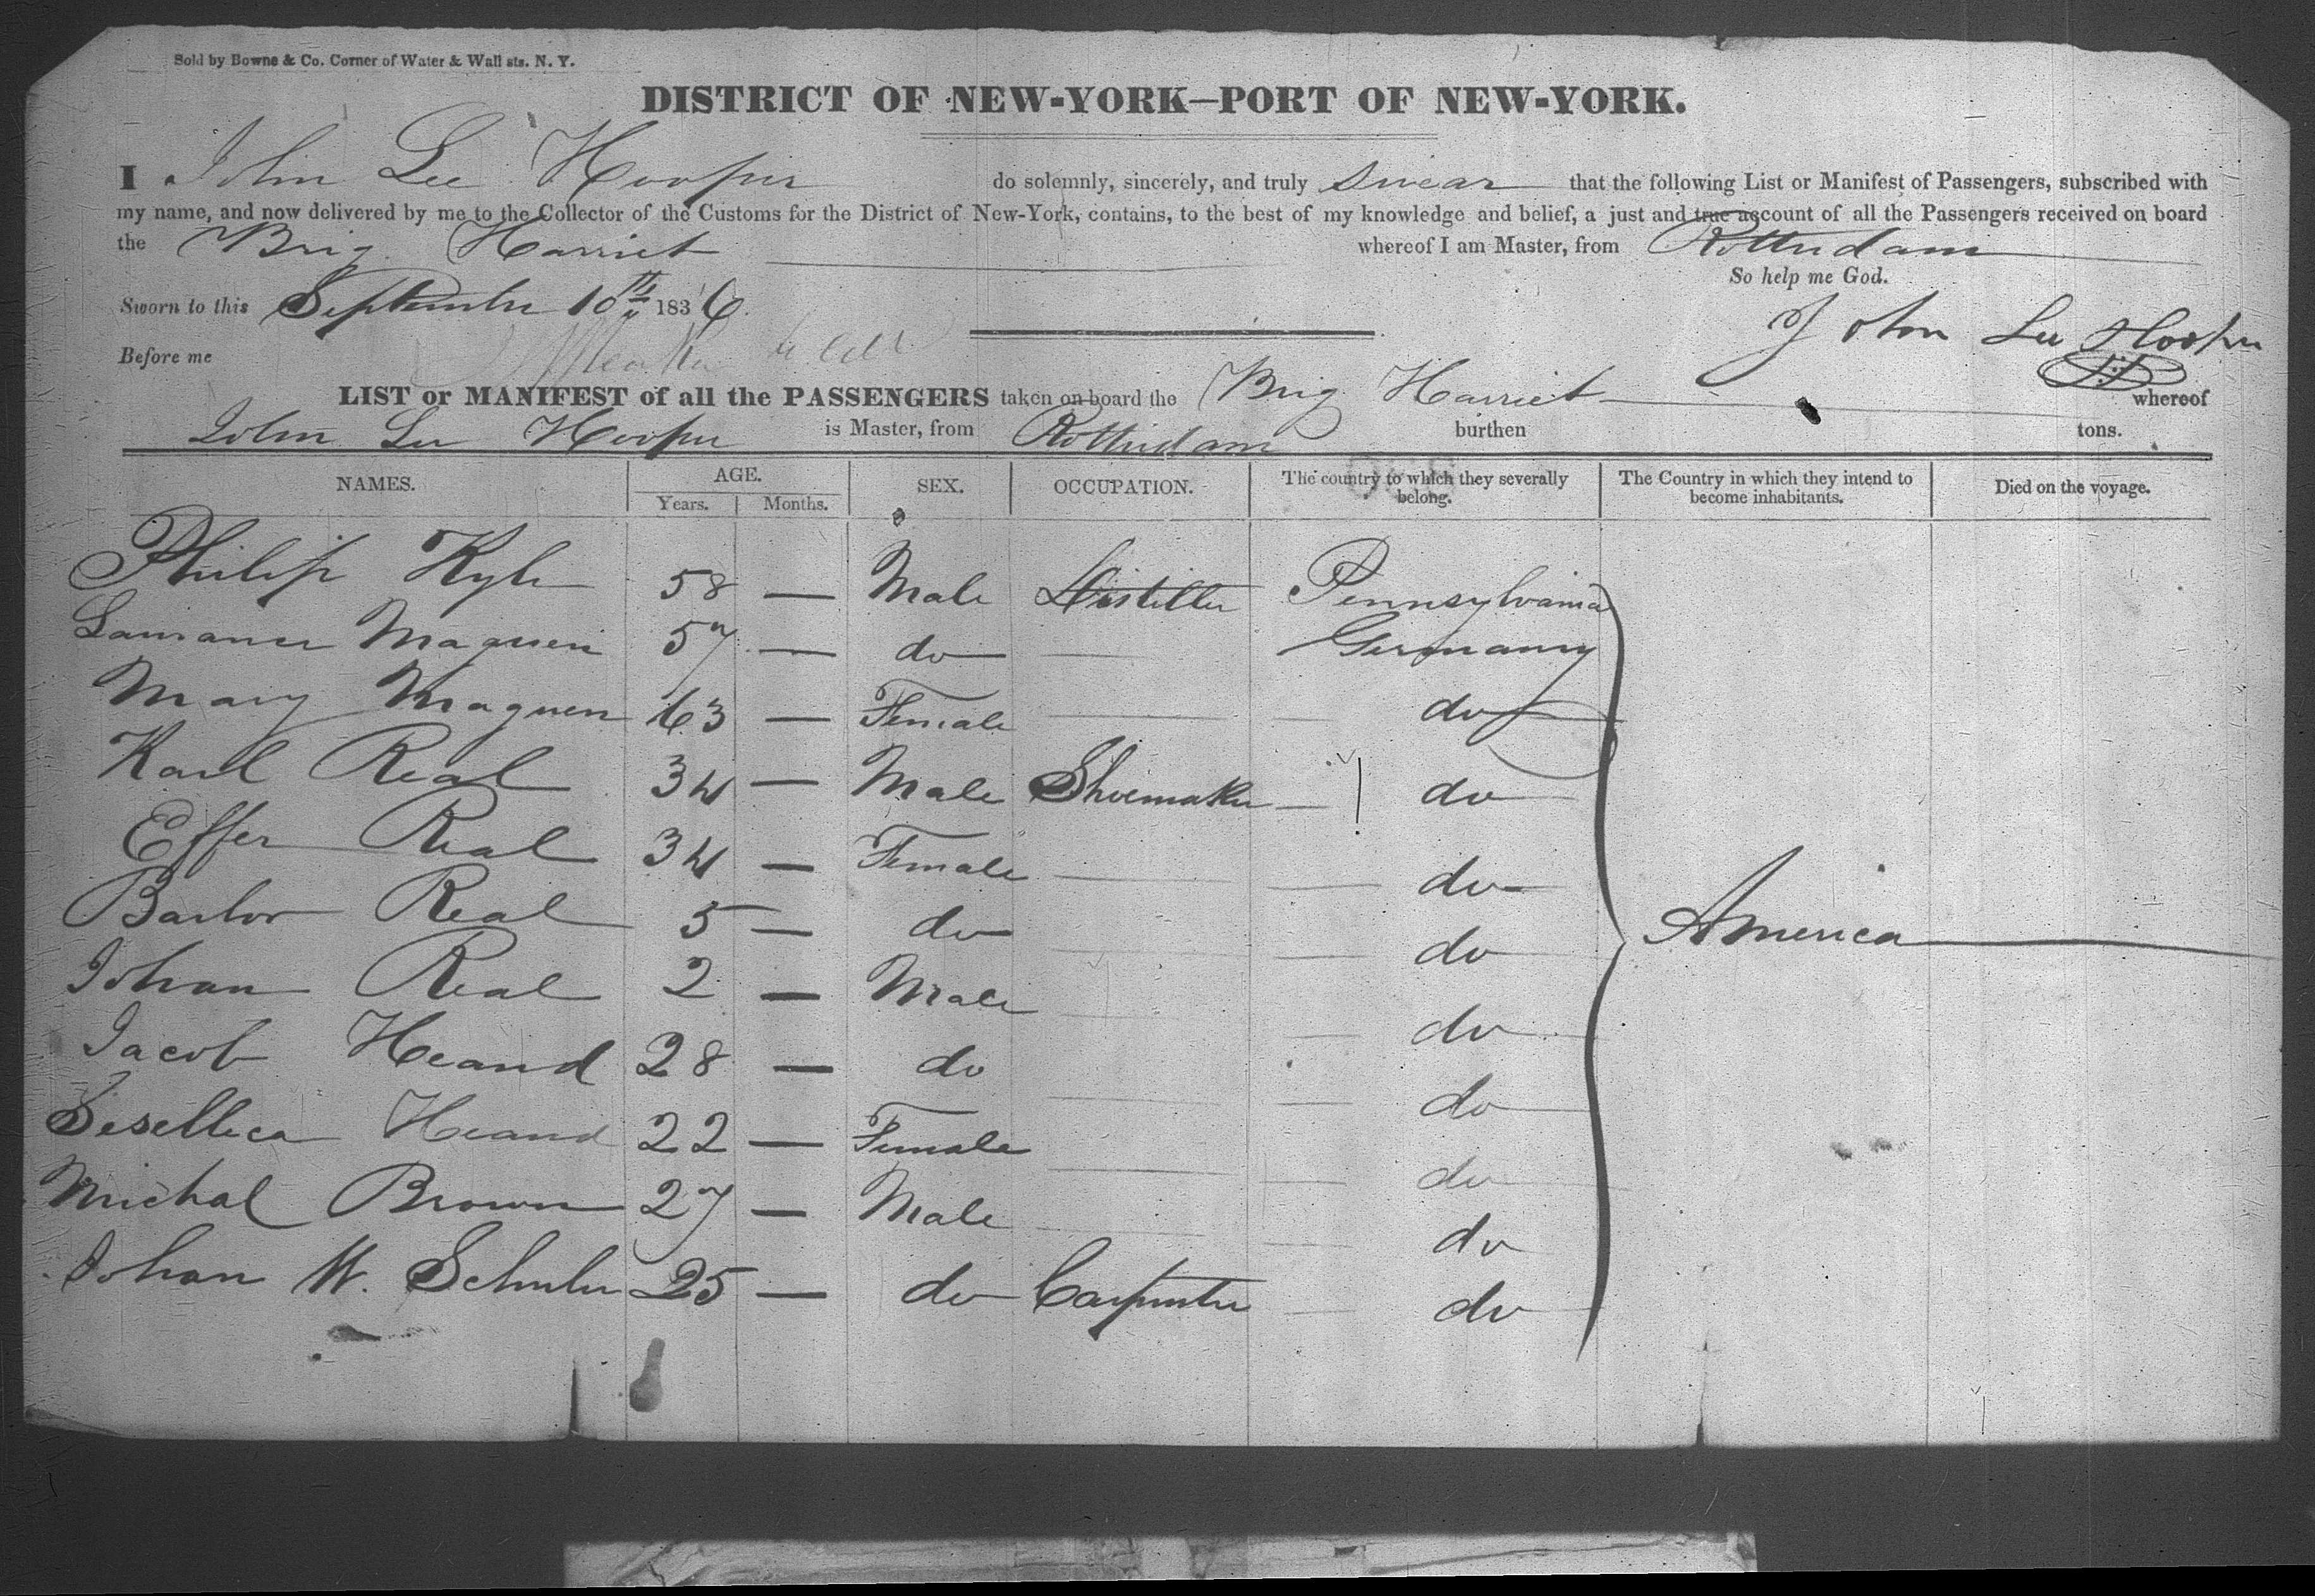 Sold by Bowne & Co. Corner of Water & Wall sts. N. Y.
DISTRICT OF NEW-YORK—PORT OF NEW-YORK.
I John Lee Hooper do solemnly, sincerely, and truly swear that the following List or Manifest of Passengers, subscribed with
my name, and now delivered by me to the Collector of the Customs for the District of New-York, contains, to the best of my knowledge and belief, a just and true account of all the Passengers received on board
the Brig Harriet whereof I am Master, from Rotterdam
So help me God.
Sworn to this September 10th 1836.
John Lee Hooper
Before me
LIST or MANIFEST of all the PASSENGERS taken on board the Brig Harriet whereof
John Lee Hooper is Master, from Rotterdam burthen tons.
NAMES. AGE. Years. Months. SEX. OCCUPATION. The country to which they severally belong. The Country in which they intend to become inhabitants. Died on the voyage.
Philip Kyle 58 — Male Distiller Pennsylvania
Maguen 57 — do — Germany
Mary Maguen 63 — Female — do
Karl Real 34 — Male Shoemaker — do
Effer Real 34 — Female — do
Barbor Real 5 — do — do
America
Johan Real 2 — Male — do
Jacob Heand 28 — do — do
Heand 22 — Female — do
Michal Brown 27 — Male — do
Johan W. Schuler 25 — do Carpenter — do